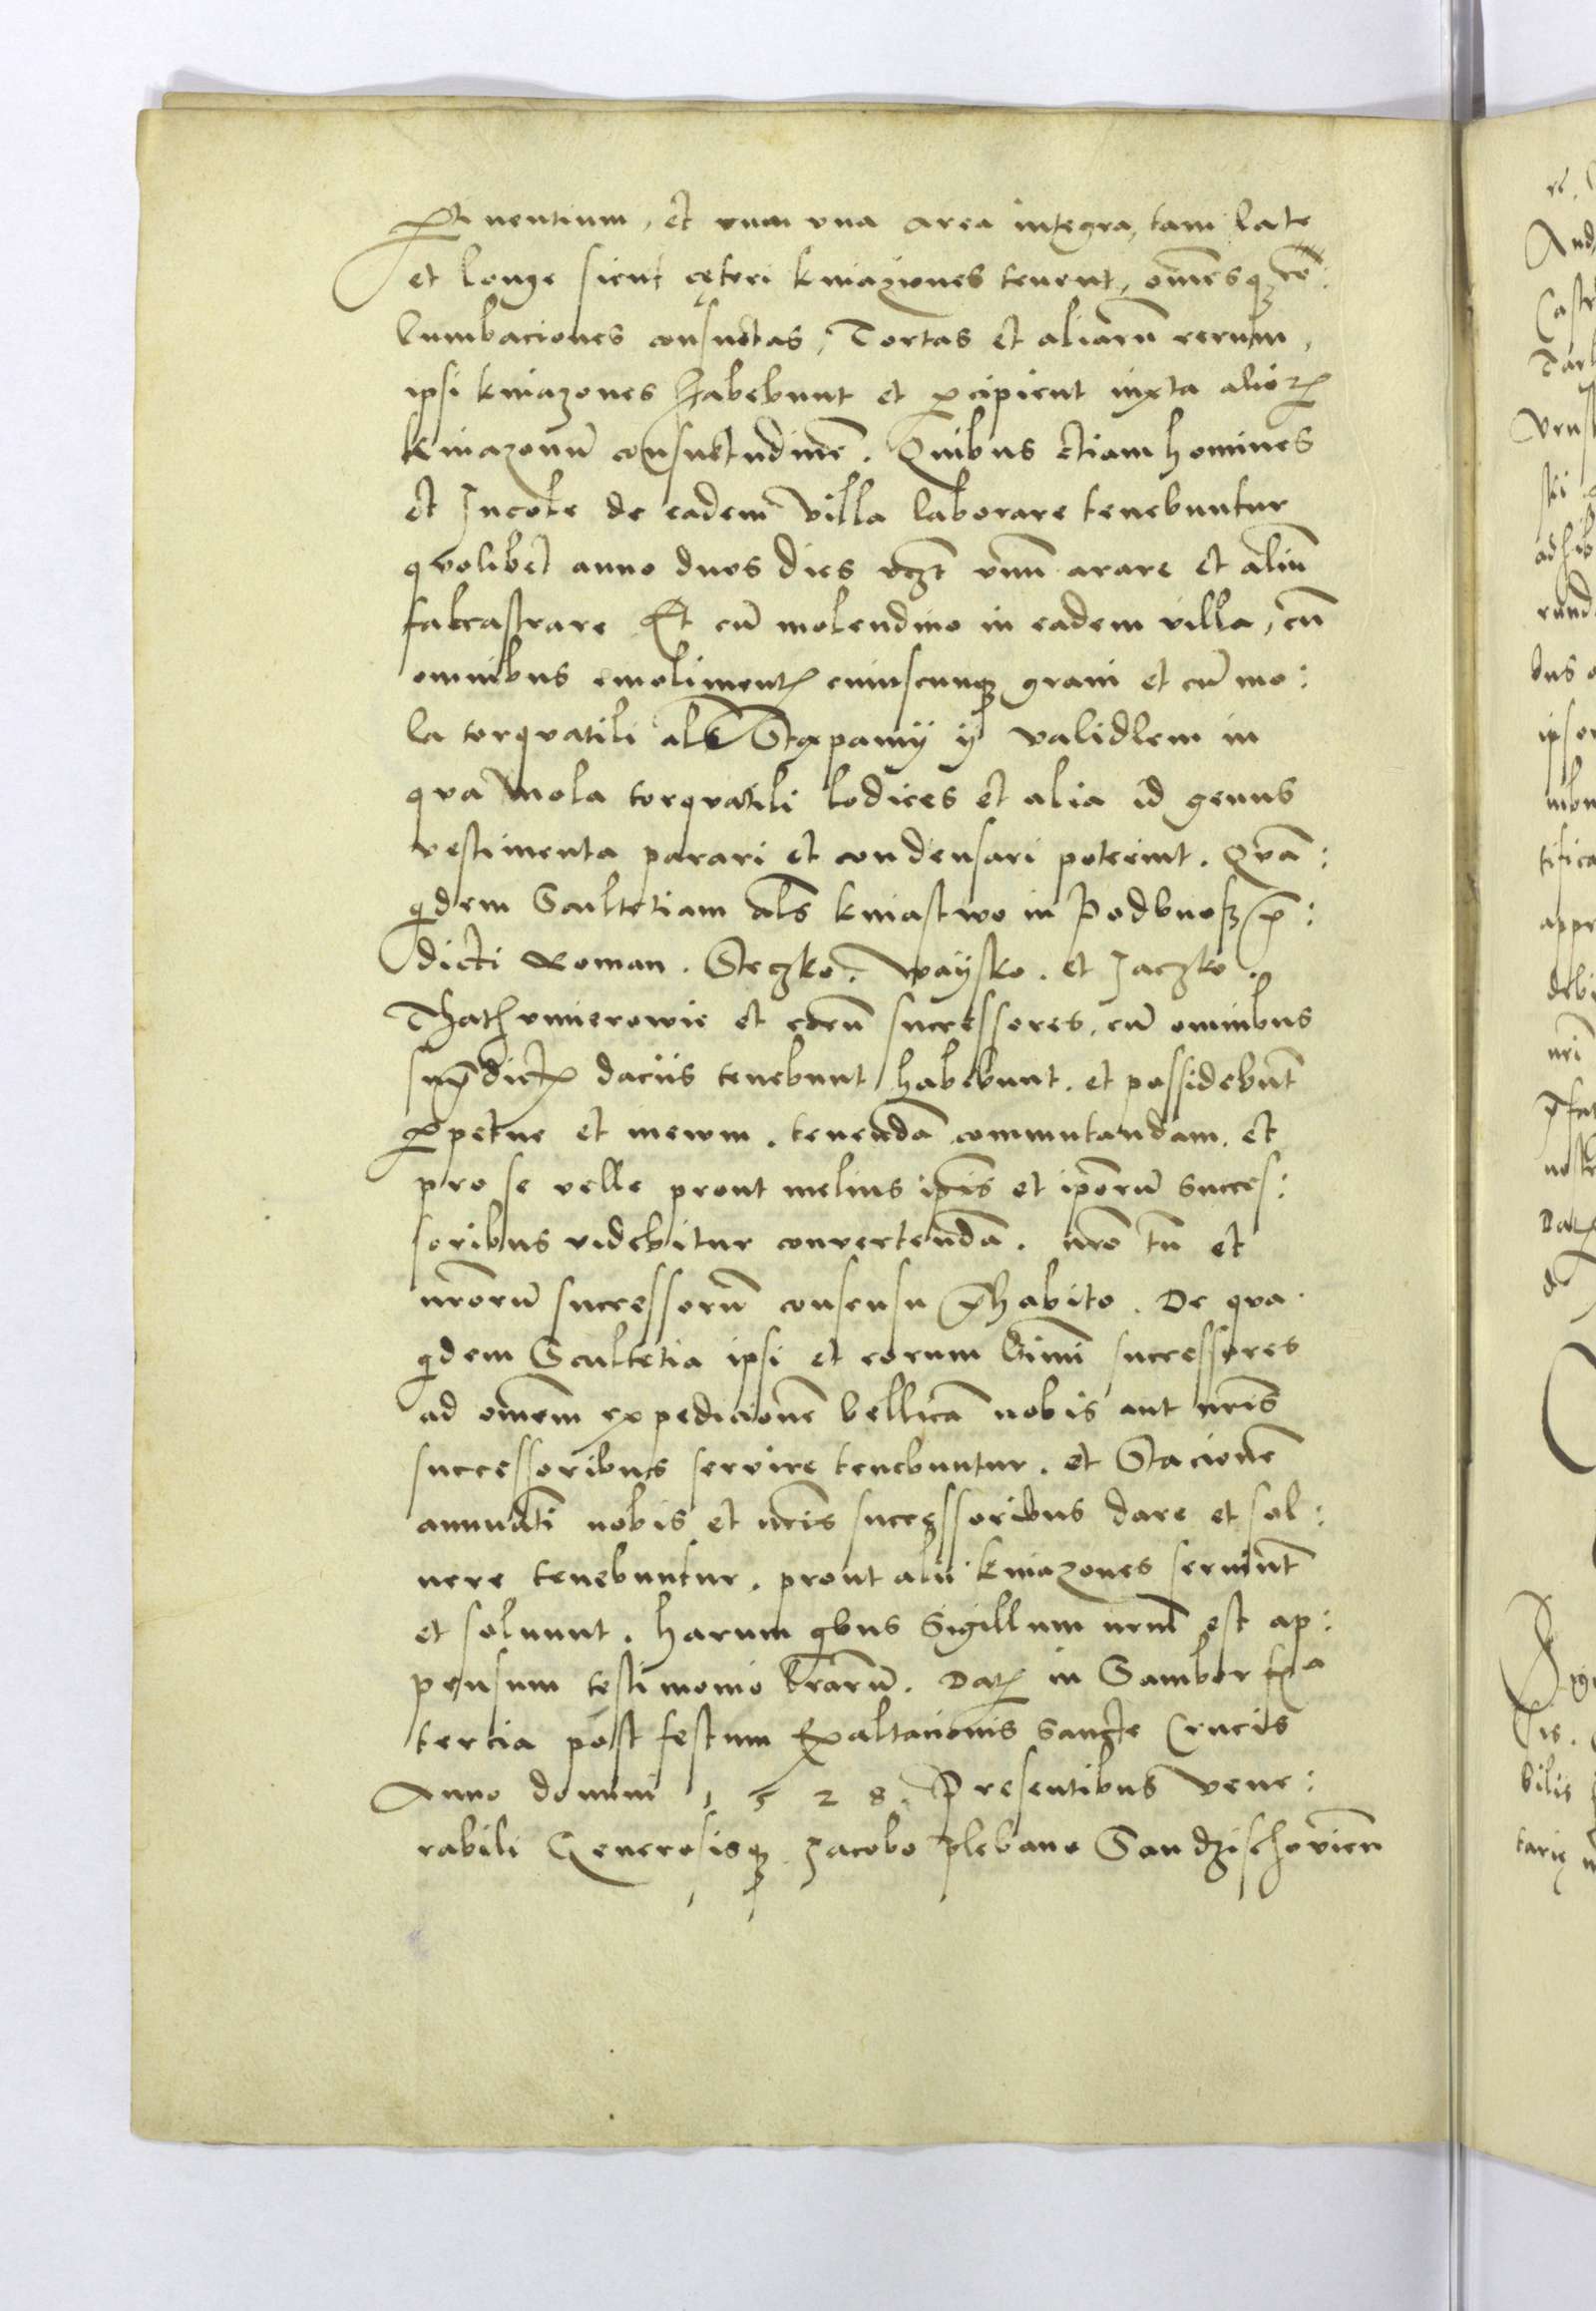 ꝑtinentium, et cum vna area integra, tam late
et longe sicut cęteri kniazones tenent, om̄esqꝫ co:
lumbaciones consuetas, Tortas et aliarū rerum,
ipsi kniazones habebunt et ꝑcipient iuxta alioꝝ
kniazonū consuetudinē. Quibus etiam homines
et Incole de eadem villa laborare tenebuntur
quolibet anno duos dies vꝫt vnū arare et aliū
falcastrare Et cū molendino in eadem villa, cū
omnibus emolimentꝭ cuiuscunqꝫ grani et cū mo:
la torquatili als Stąpamÿ ÿ validlem in
qua mola torquatili lodices et alia id genus
vestimenta parari et condensari poterint. Quā:
qdem Scultetiam als kniastwo in Podbuoß p̄:
dicti Roman. Steczko. Waÿsko. et Jaczko.
Thathumierowie et eorū successores, cū omnibus
sup̄dictꝭ daciis tenebunt habebunt. et possidebūt
ꝑpetue et in ewm. tenendā commutandam. et
pro se velle prout melius ip̄is et ip̄orū succes:
soribus videbitur conuertendā. nr̄o tn̄ et
nr̄orū successorū consensu p̄habito. De qua
qdem Scultetia ipsi et eorum lt̄imi successores
ad om̄em expedicionē bellicā nobis aut nr̄is
successoribus seruire tenebuntur. et Stacionē
annuatī nobis et nr̄is successoribus dare et sol:
uere tenebuntur. prout alii kniazones seruiūt
et soluunt. Harum qbus Sigillum nr̄m est ap:
pensum testimonio lr̄arū. Datꝭ in Sambor fꝭa
tercia post festum Exaltacionis Sancte Crucis
Anno domini 1528. Presentibus vene:
rabili Generosisqꝫ. Jacobo plebano Sandzischowien̄